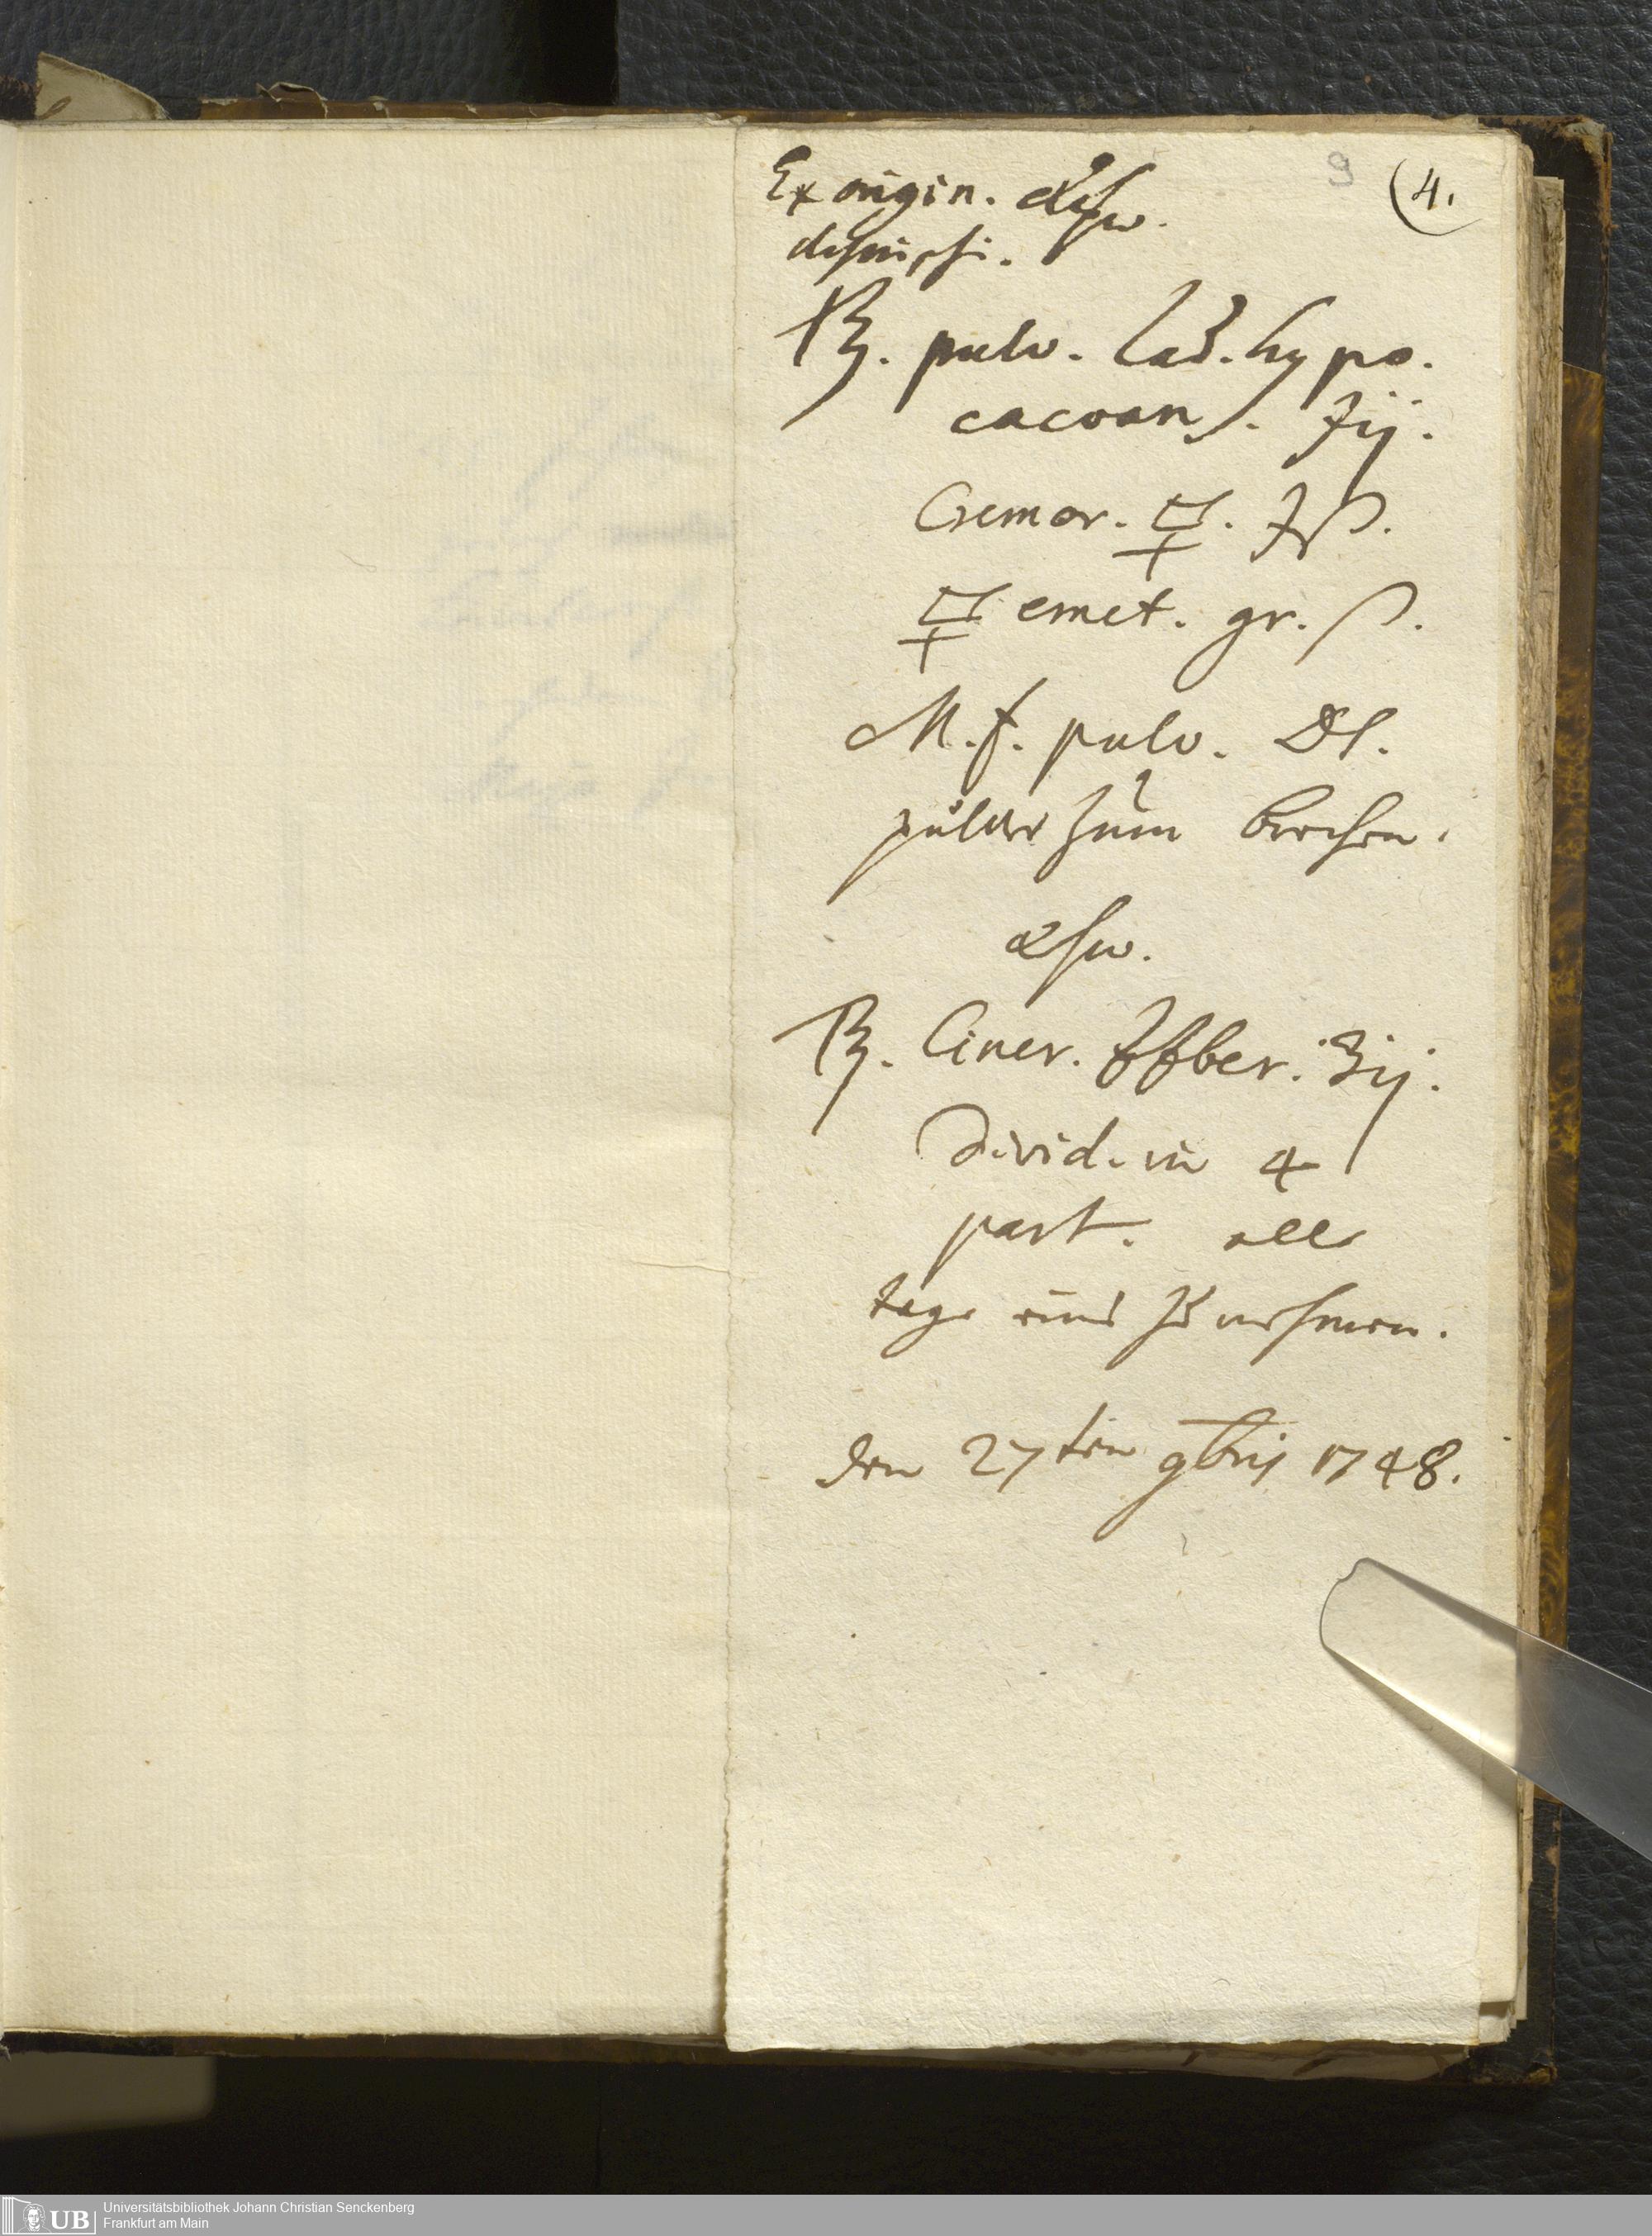 9 (4.
Ex origin.
descripsi.
℞. pulv. rad. hypo.
cacoan. ʒij.
Cremor. 🜿. ʒß.
🜿 emet. gr. ß.
M. f. pulv. DS.
pulver zum brechen.
℞. Ciner. ffber. ʒij.
Divid. in 4
part. alle
tage eins zu nehmen.
den 27ten 9bris 1748.
UB Universitätsbibliothek Johann Christian Senckenberg
Frankfurt am Main